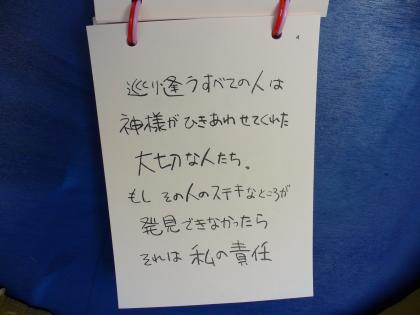 4
巡り逢うすべての人は
神様がひきあわせてくれた
大切な人たち。
もし その人のステキなところが
発見できなかったら
それは 私の責任